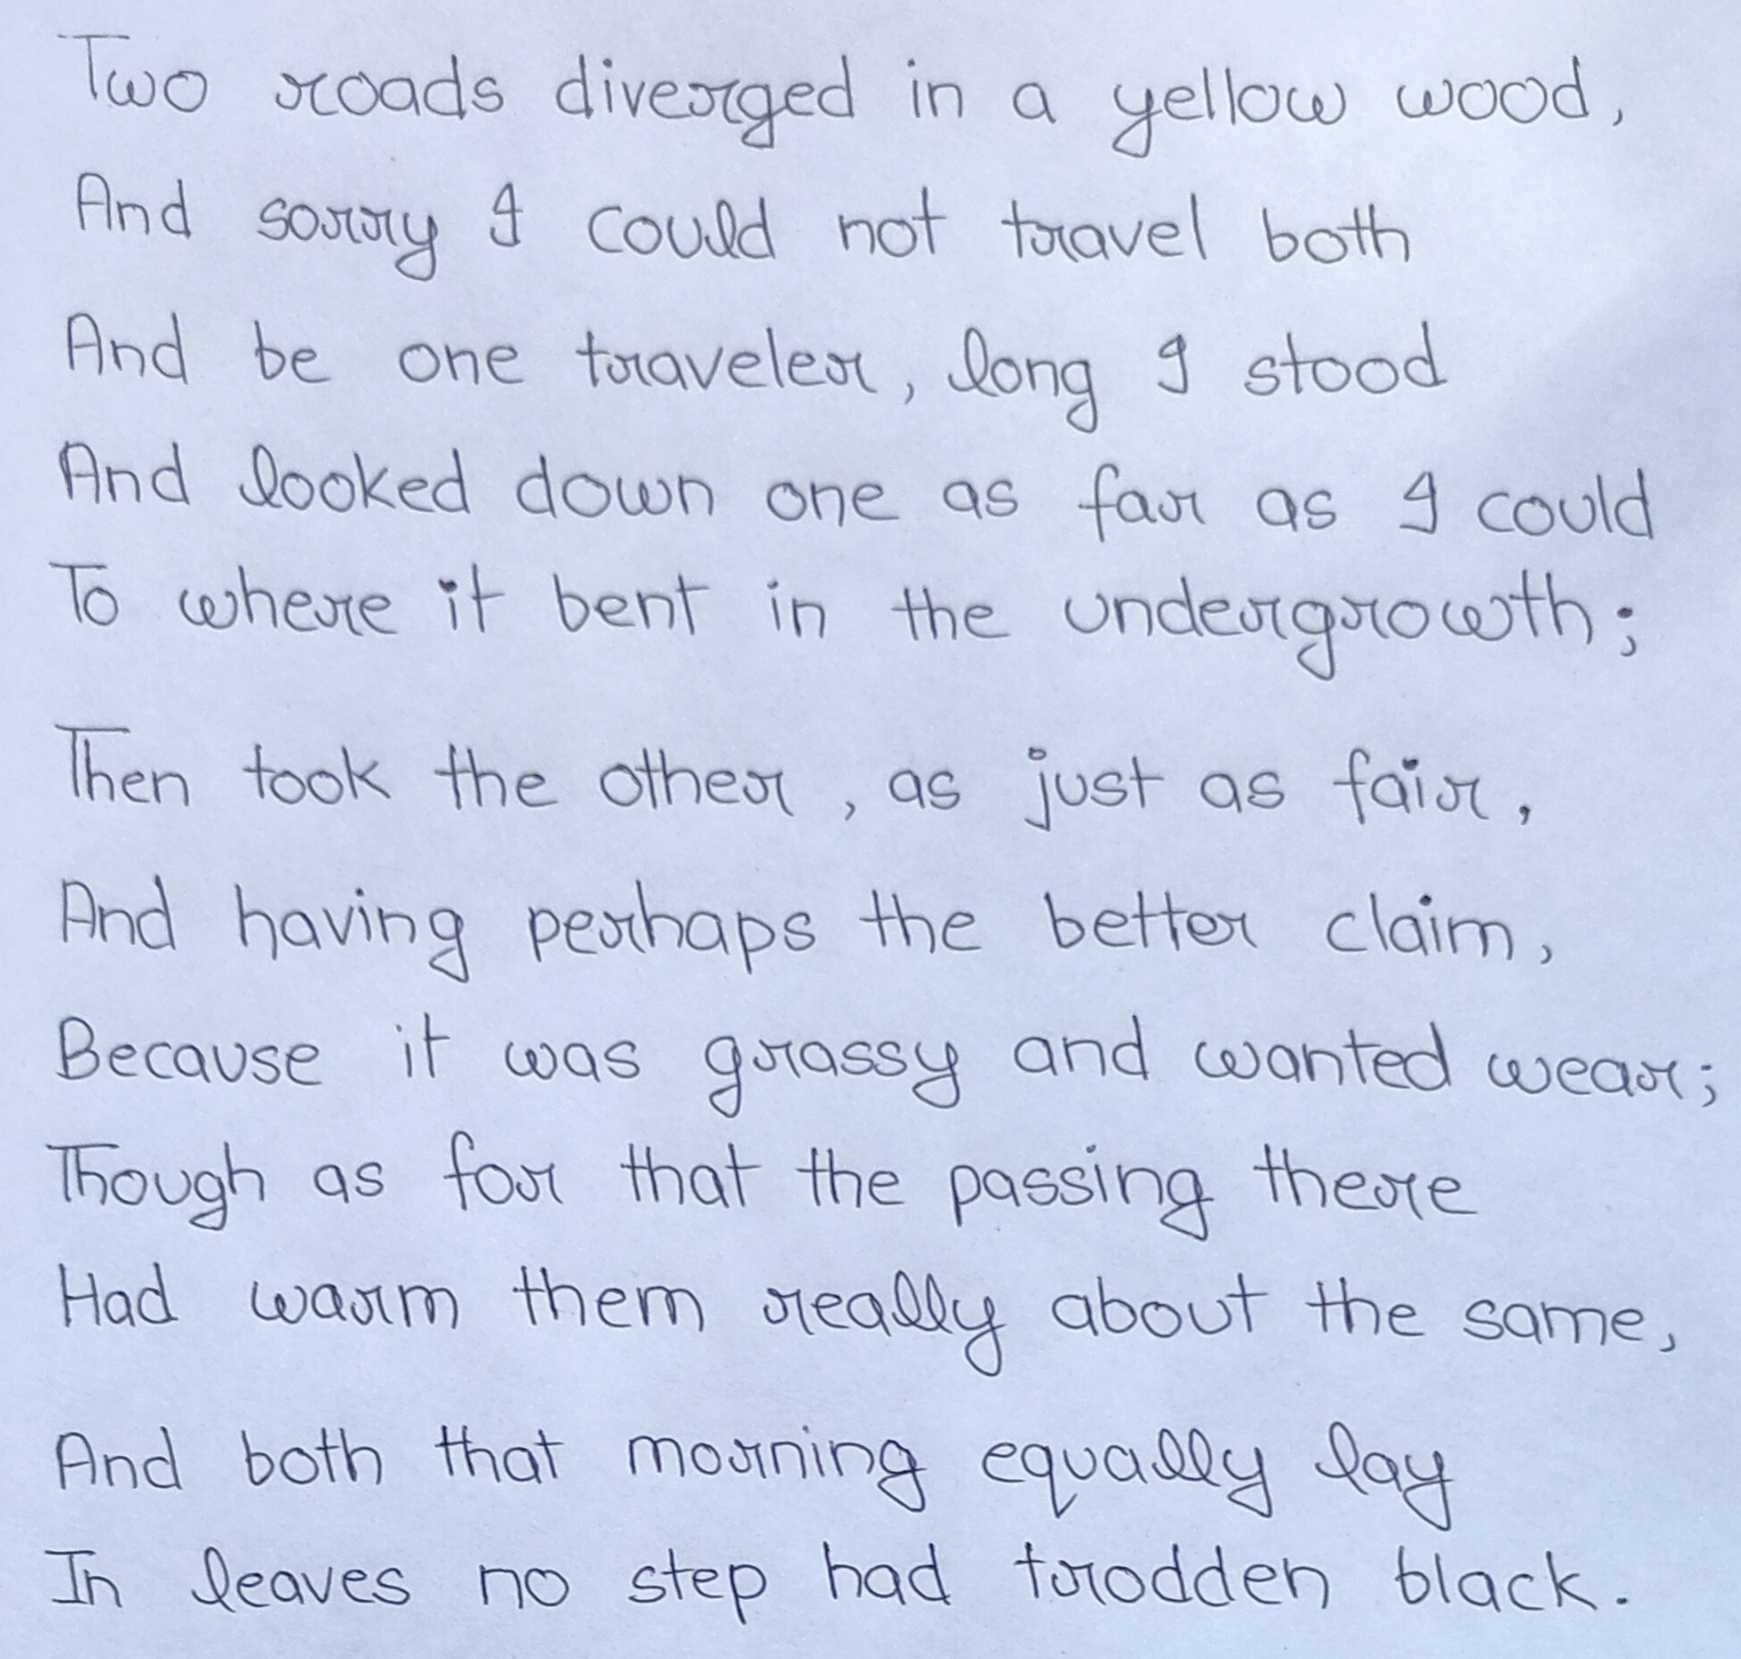 Two roads diverged in a yellow wood,
And sorry I could not travel both
And be one traveler, long I stood
And looked down one as far as I could
To where it bent in the undergrowth;
Then took the other, as just as fair,
And having perhaps the better claim,
Because it was grassy and wanted wear;
Though as for that the passing there
Had warm them really about the same,
And both that morning equally lay
In leaves no step had trodden black.